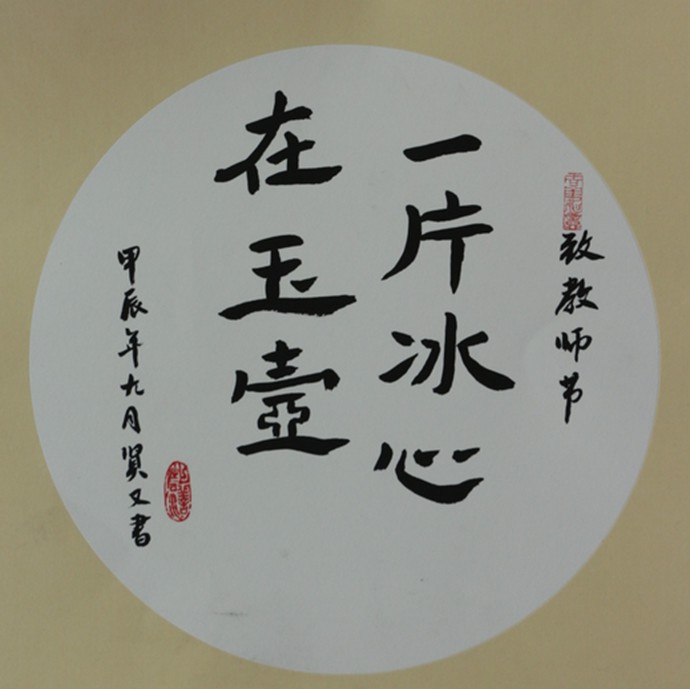 致教师节
一片冰心
在玉壶
甲辰年九月贤又书